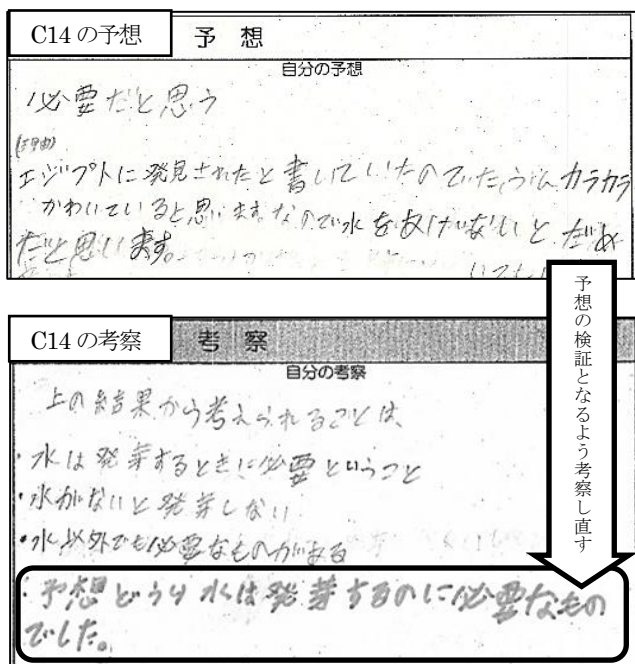 C14の予想
予 想
自分の予想
必要だと思う
(理由)
エジプトに発見されたと書いていたのでたぶんカラカラ
かわいていると思います。なので水をあげないとだめ
だと思います。
予想の検証となるよう考察し直す
C14の考察
考 察
自分の考察
上の結果から考えられることは、
・水は発芽するときに必要ということ
・水がないと発芽しない
・水以外でも必要なものがある
・予想どうり水は発芽するのに必要なもの
でした。